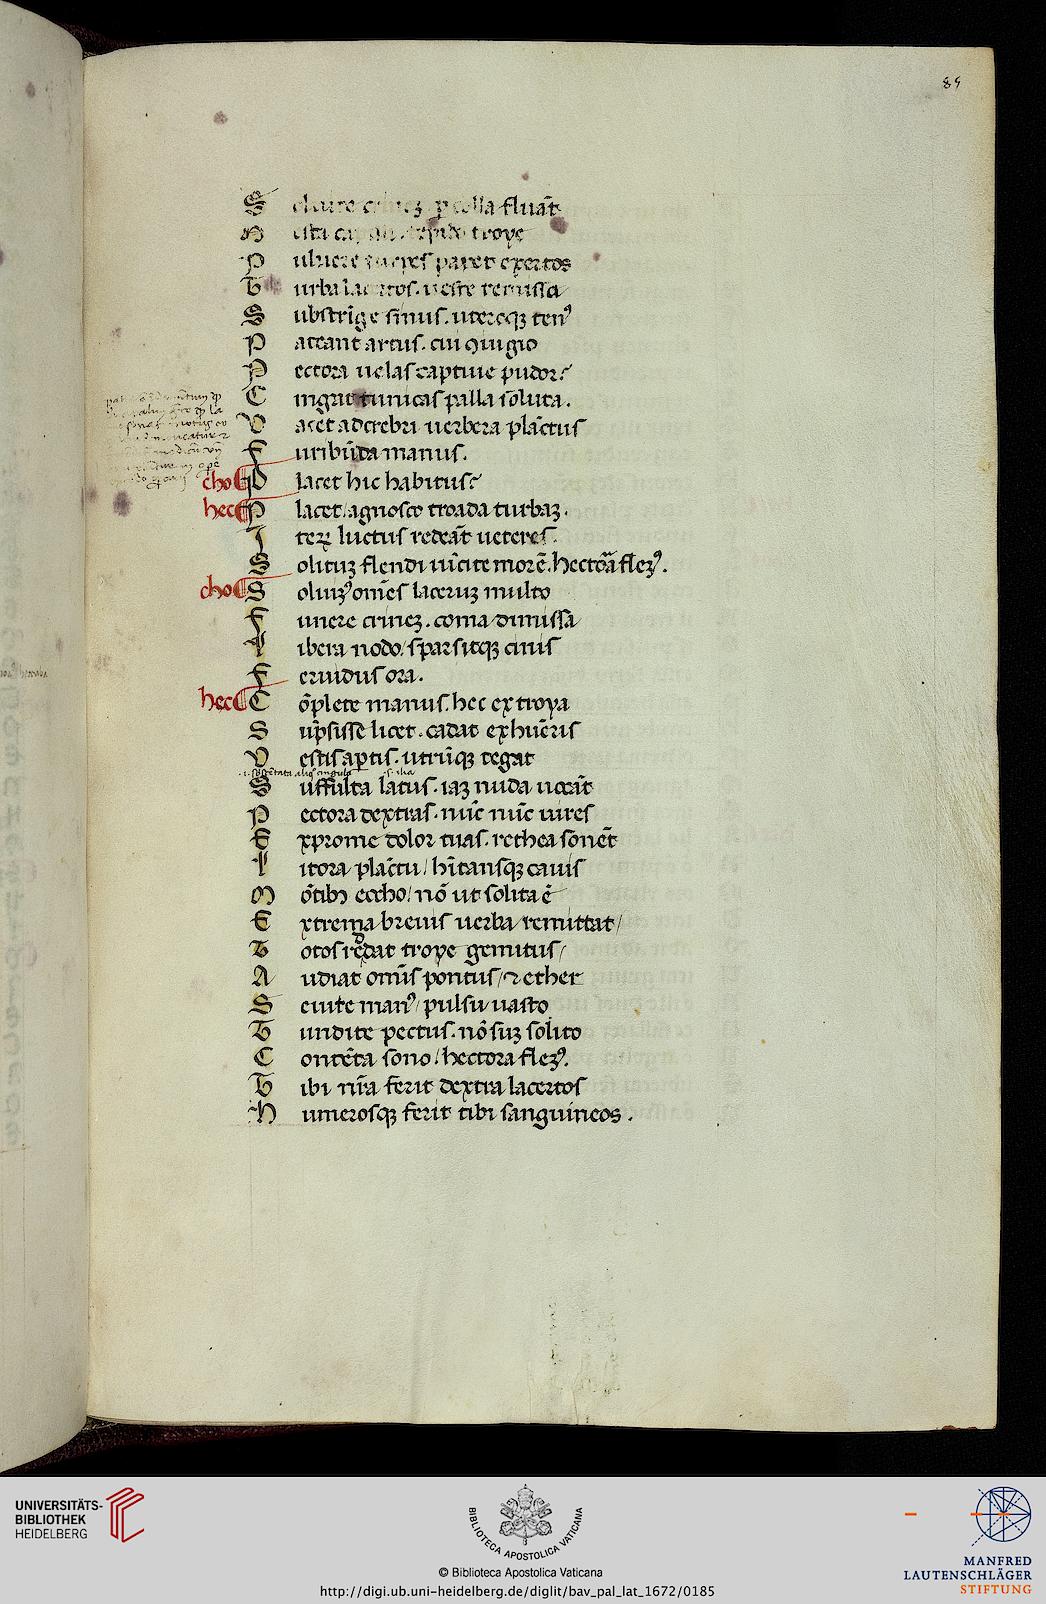 85
Soluite crineʒ p colla fluāt
Mesta capill tepido troye
Puluere turpes paret exertos
Turba lacertos. ueste remissa
Substrīge sinus. uteroqꝫ tenꝰ
Pateant artus. cui ꝯiugio
Pectora uelas captiue pudor?
Cingat tunicas palla soluta.
Vacet ad crebri uerbera plāctus
Furibūda manus.
cho Placet hic habitus?
hec Placet / agnosco troada turbaꝫ.
Iteꝝ luctus redeāt ueteres.
Solituꝫ flendi uīcite morē. hectorā fleꝫꝰ.
cho Soluiꝫꝰ om̄es laceruꝫ multo
Funere crineꝫ. coma dimissa
Libera nodo / sparsitqꝫ cinis
Feruidus ora.
hec Cōplete manus. hec ex troya
Sūpsisse licet. cadat exhūeris
Vestis aptis. utrūqꝫ tegat
Suffulta latus. iaꝫ nuda uocāt
Pectora dextras. nūc nūc uires
Exprome dolor tuas. rethea sonēt
Litora plāctu / hītansqꝫ cauis
Mōtibꝫ eccho / nō ut solita ē
Extrema breuis uerba remittat /
Totos reddat troye gemitus /
Audiat om̄is pontus / ⁊ ether
Seuite manꝰ / pulsu uasto
Tundite pectus. nō suꝫ solito
Contēta sono / hectora fleꝫꝰ.
Tibi nr̄a ferit dextra lacertos
Humerosqꝫ ferit tibi sanguineos.
UNIVERSITÄTS-
BIBLIOTHEK
HEIDELBERG
BIBLIOTECA APOSTOLICA VATICANA
© Biblioteca Apostolica Vaticana
http://digi.ub.uni-heidelberg.de/diglit/bav_pal_lat_1672/0185
MANFRED
LAUTENSCHLÄGER
STIFTUNG